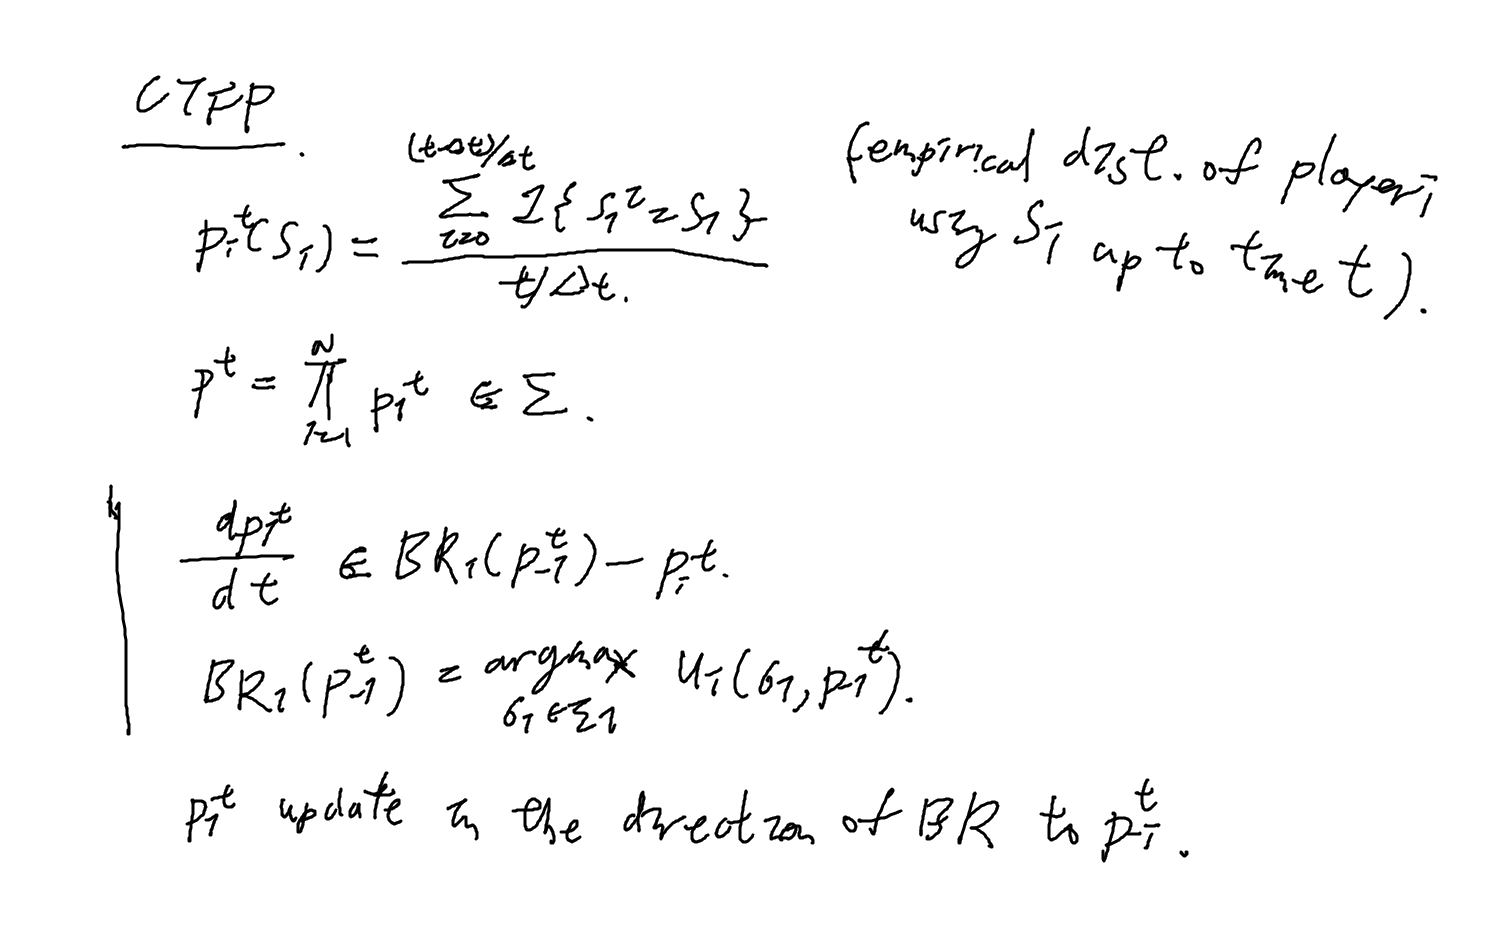 CTFP.
p_i^t(s_i) = \frac{\sum_{τ=0}^{(t-Δt)/Δt} 1{s_i^τ = s_i}}{t/Δt}. (empirical dist. of player i
using s_i up to time t).
p^t = \prod_{i=1}^{N} p_i^t ∈ Σ.
\frac{dp_i^t}{dt} ∈ BR_i(p_{-i}^t) - p_i^t.
BR_i(p_{-i}^t) = argmax_{σ_i ∈ Σ_i} u_i(σ_i, p_{-i}^t).
p_i^t update in the direction of BR to p_{-i}^t.